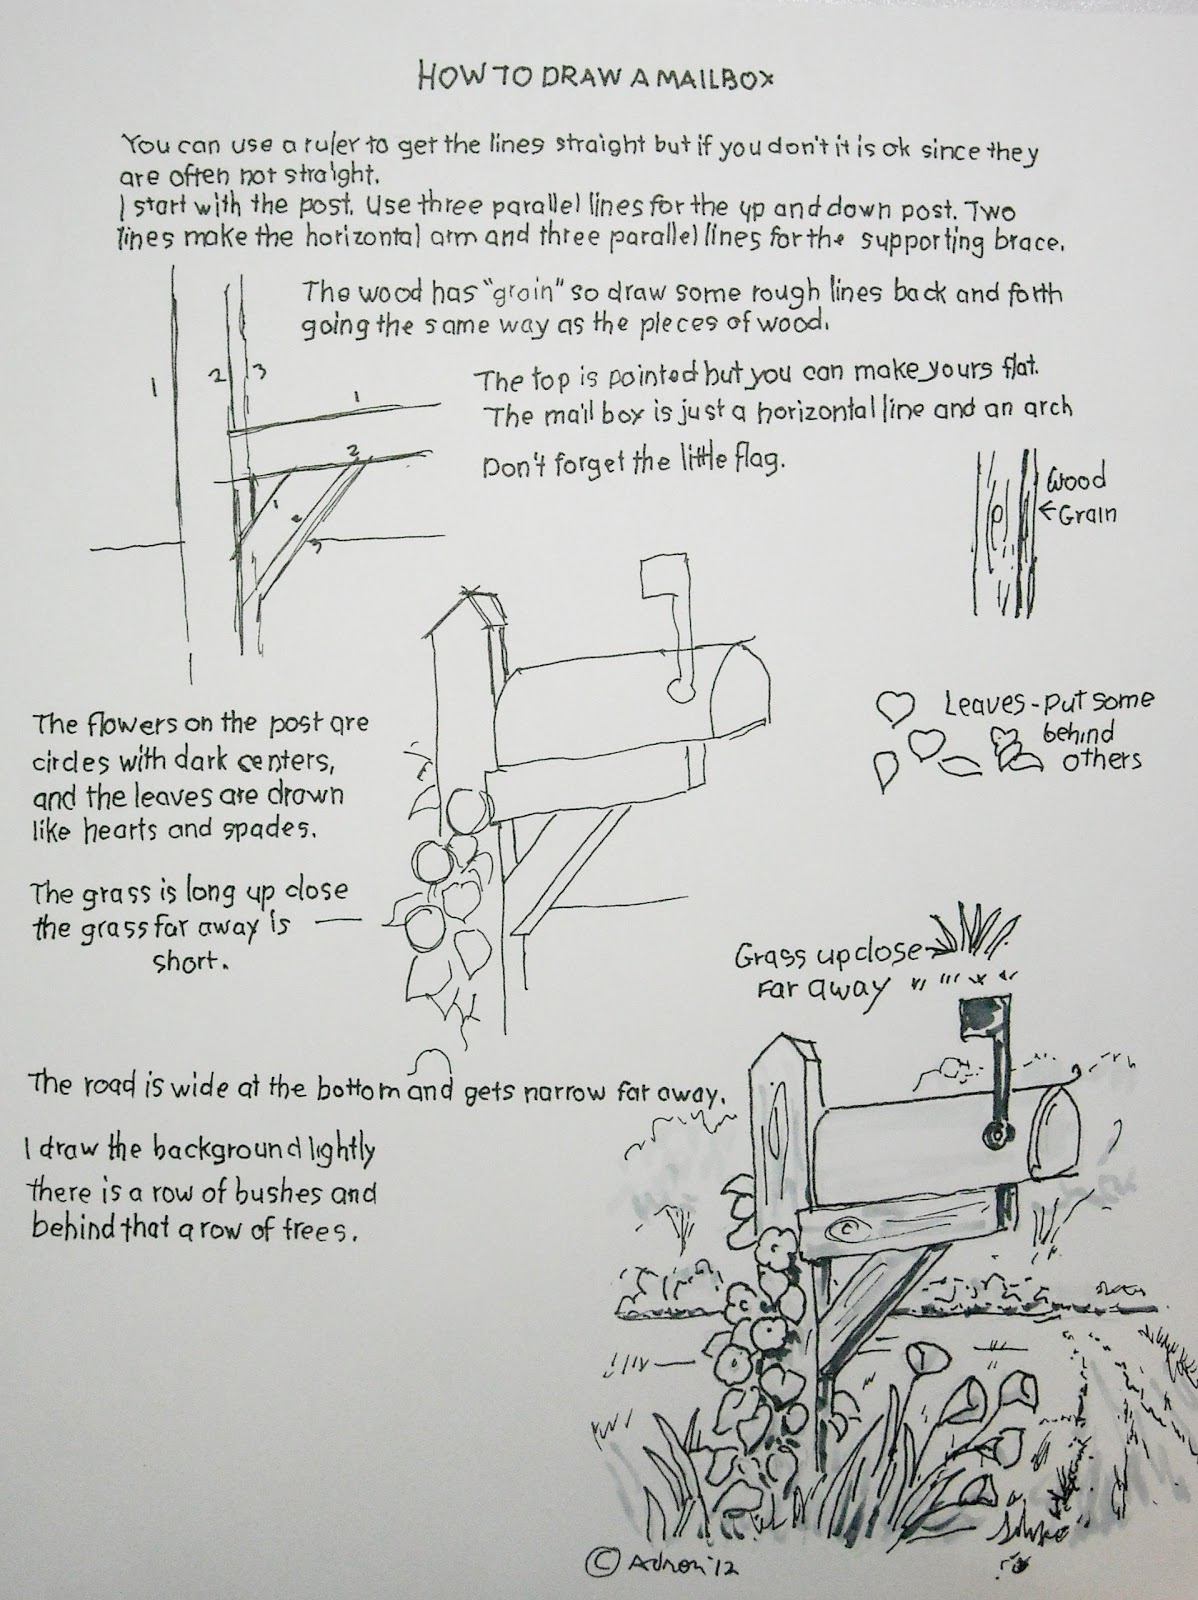 HOW TO DRAW A MAILBOX
You can use a ruler to get the lines straight but if you don't it is ok since they
are often not straight.
I start with the post. Use three parallel lines for the up and down post. Two
lines make the horizontal arm and three parallel lines for the supporting brace.
The wood has "grain" so draw some rough lines back and forth
going the same way as the pieces of wood.
1 2 3
1
The top is pointed but you can make yours flat.
The mail box is just a horizontal line and an arch
2
Don't forget the little flag.
1 2 3
Wood
Grain
Leaves - put some
behind
others
The flowers on the post are
circles with dark centers,
and the leaves are drawn
like hearts and spades.
The grass is long up close
the grass far away is
short.
Grass up close
Far away
The road is wide at the bottom and gets narrow far away.
I draw the background lightly
there is a row of bushes and
behind that a row of trees.
© Adron '12